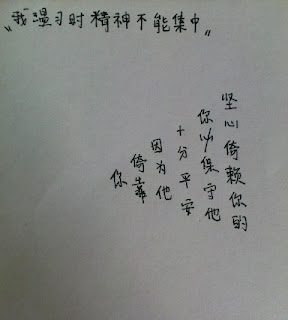 "我温习时精神不能集中"
坚心倚赖你的
你必保守他
十分平安
因为他
倚靠
你